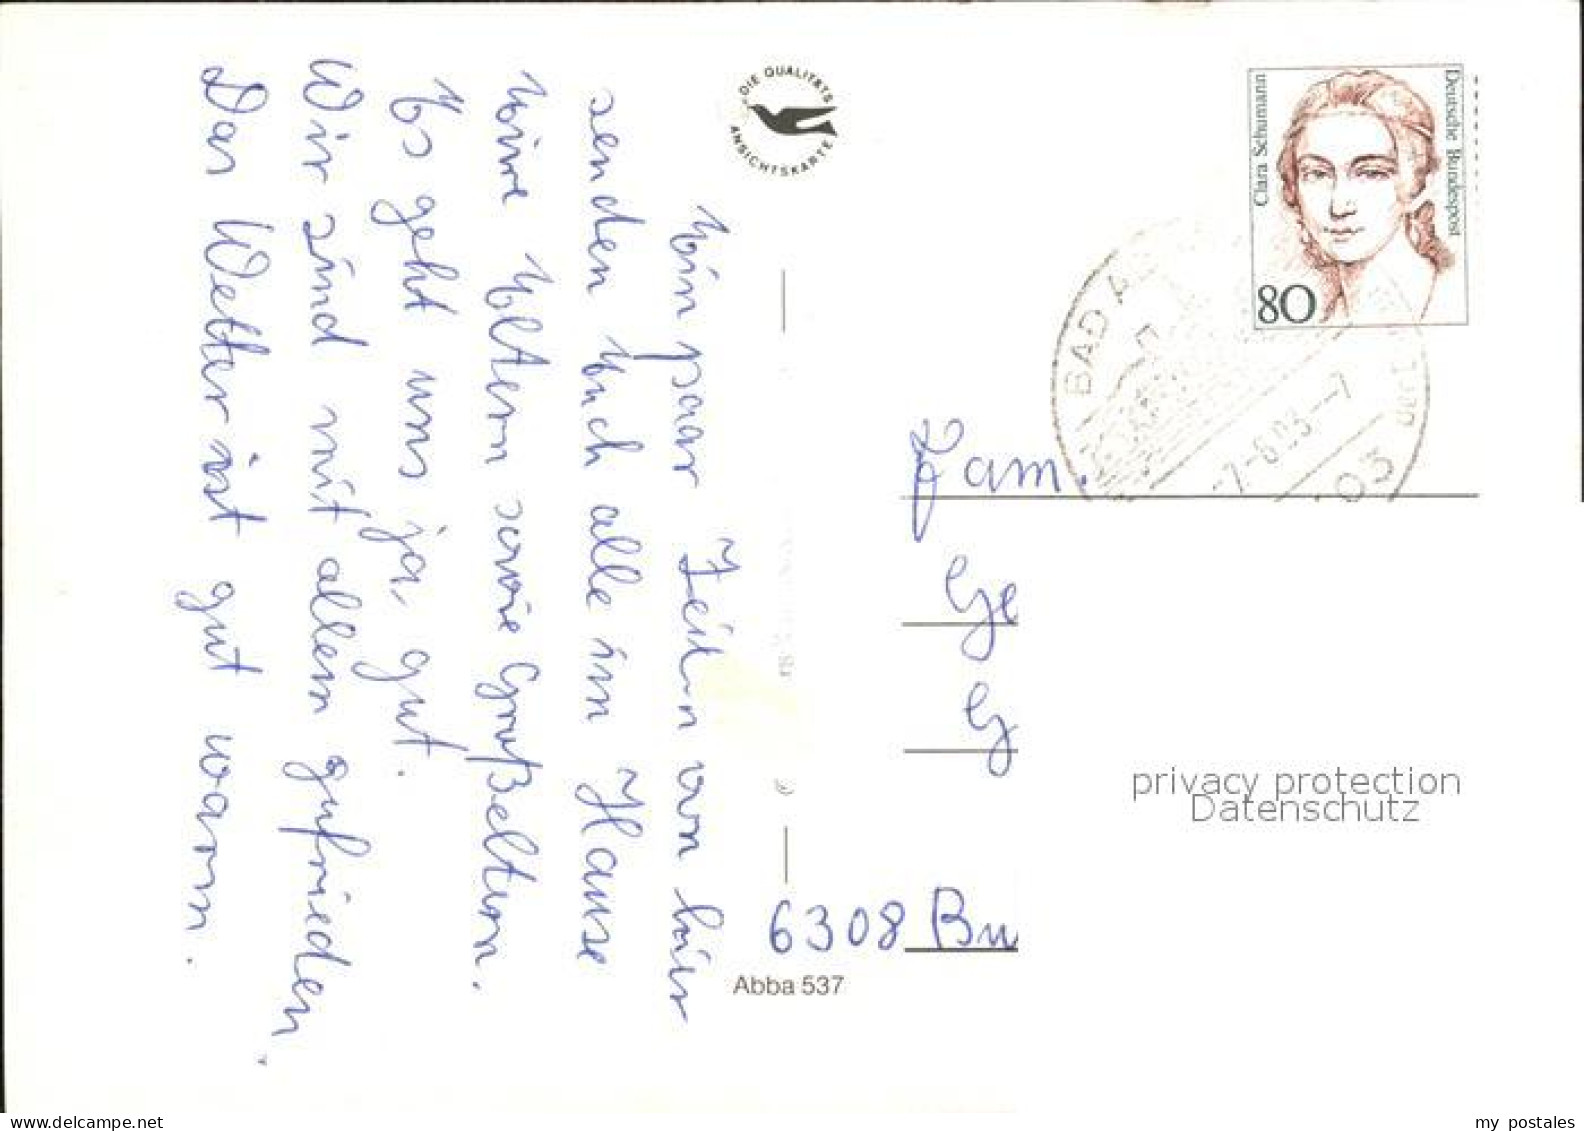 Ein paar Zeilen von hier
senden Euch alle im Hause
Eure Eltern sowie Großeltern.
Es geht uns ja, gut.
Wir sind mit allem zufrieden.
Das Wetter ist gut warm.
DIE QUALITÄTS
ANSICHTSKARTE
Clara Schumann
Deutsche Bundespost
80
BAD A
-7.-6.93--7
03
Fam.
Ge
G
6308 Bu
privacy protection
Datenschutz
Abba 537
www.delcampe.net
my postales